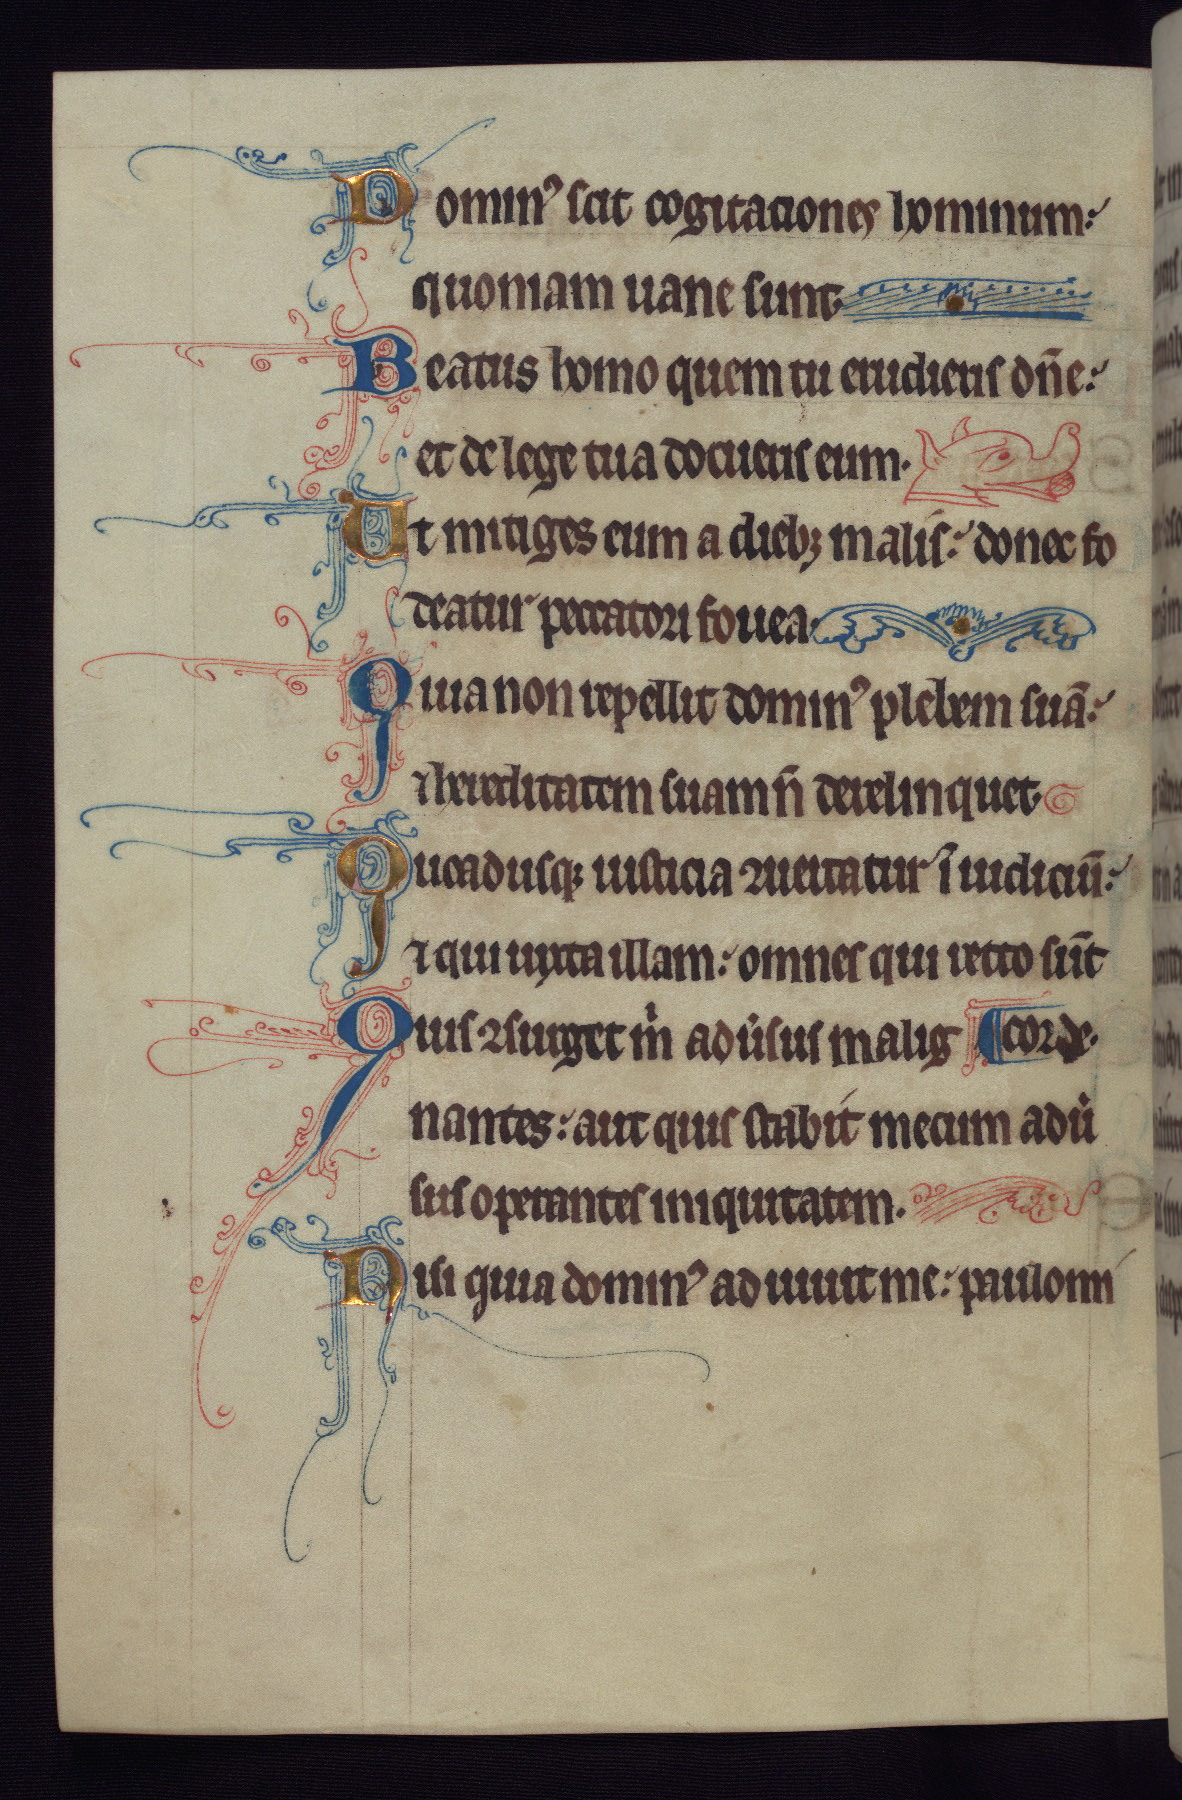 Domin⁹ scit cogitaciones hominum:
quoniam uane sunt
Beatus homo quem tu erudieris dn̄e:
et de lege tua docueris eum.
Ut mitiges eum a dieb; malis: donec fo
deatur peccatori fouea.
Quia non repellit domin⁹ plebem suā:
⁊ hereditatem suam n̄ derelinquet
Quoadusq; iusticia ꝯuertatur ī iudiciū:
⁊ qui iuxta illam: omnes qui recto sūt
Quis ꝯsurget m̄ adu̓sus malig ¶ corde.
nantes: aut quis stabit mecum adu̓
sus operantes iniquitatem.
Nisi quia domin⁹ adiuuit me: paulomi